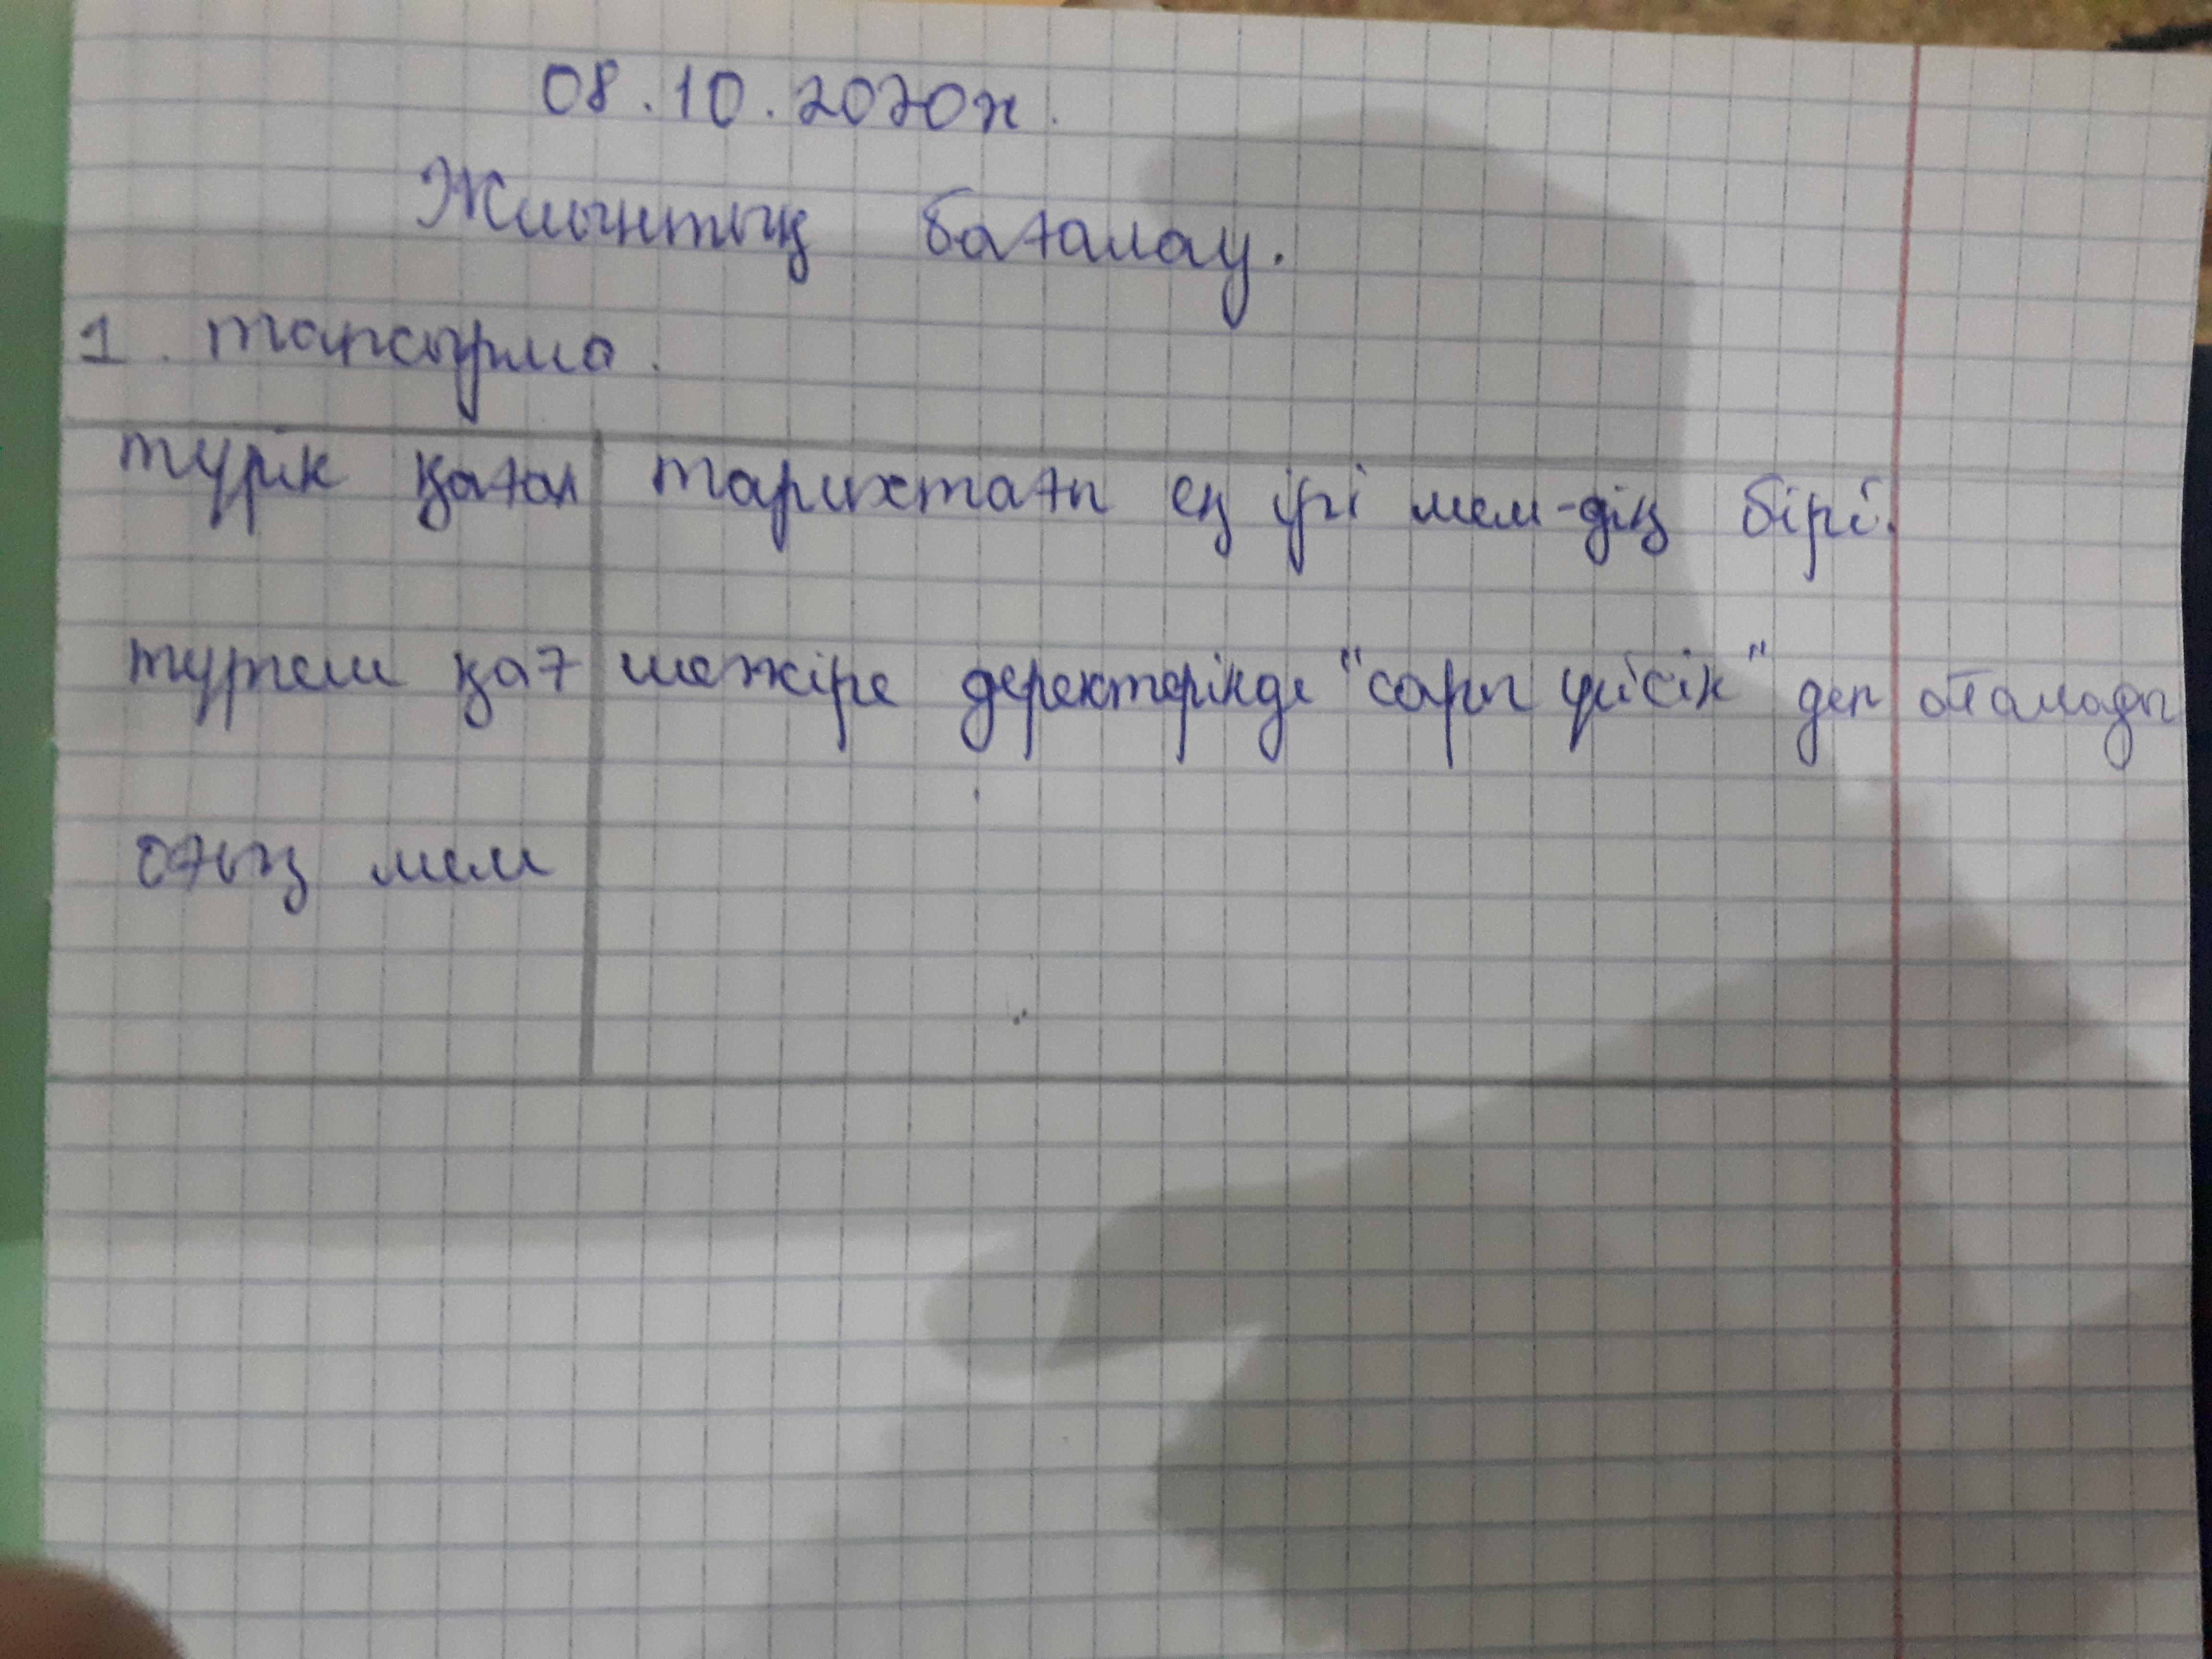 08.10.2020ж.
Жиынтық бағалау.
1. тапсырма.
түрік қаған тарихтағы ең ірі мем-дің бірі.
түргеш қағ шежіре деректерінде "сары үйсін" деп аталады
оғыз мем